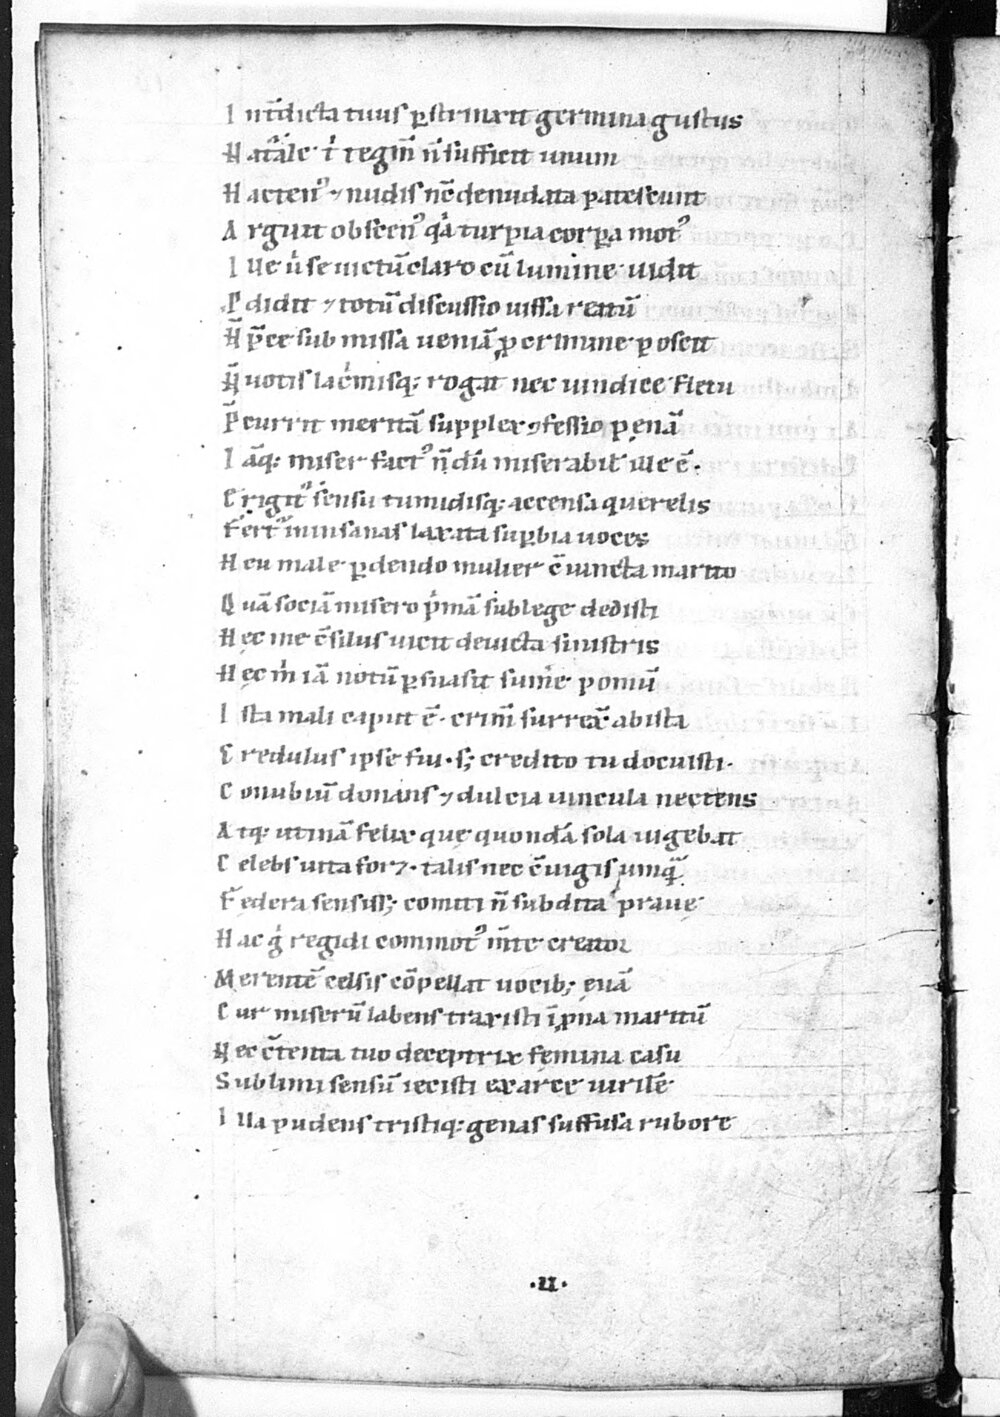 I nt̄dicta tuus ꝑstrinxit germina gustus
N atᷓale tᷣ tegm̄ n̄ sufficit unum
H actenꝰ ⁊ nudis nc̄ denudata patescunt
A rguit obscenꝰ qᷓ turpia corꝑa motꝰ
I lle uͥ se uictū claro cū lumine uidit
P̄ didit ⁊ totū discussio uissa reatū
N̄ p̄ce submissa ueniā ꝓ crimine poscit
N̄ uotis lacͥmisq; rogat nec uindice fletu
P̄ currit meritā supplex ꝯfessio penā
I āq; miser factꝰ nͦdū miserabil' ille ē.
E rigitᷣ sensu tumidisq; accensa querelis
F ertᷣ in insanas laxata suꝑbia uoces
H eu male ꝑdendo mulier c̄iuncta marito
Q uā sociā misero pͥmā sub lege dedisti
H ęc me c̄silus uicit deuicta sinistris
H ęc mͥ iā notū ꝑsuasit sum̄e pomū
I sta mali caput ē. crim̄ surrex̄ ab ista
C redulus ipse fui. s; credito tu docuisti.
C onubiū donans ⁊ dulcia uincula nectens
A tq; utinā felix quę quondā sola uigebat
C elebs uita foret. talis nec c̄iugis umqᷓ
F ędera sensiss; comiti n̄ subdita prauę
H ac gͥ regidi commotꝰ m̄te creator
M erentē celsis cōpellat uocib; euā
C ur miserū labens traxisti ī ꝓna maritū
N ec c̄tenta tuo deceptrix femina casu
S ublimi sensū iecisti ex arce uirilē
I lla pudens tristiq; genas suffusa rubore
.II.